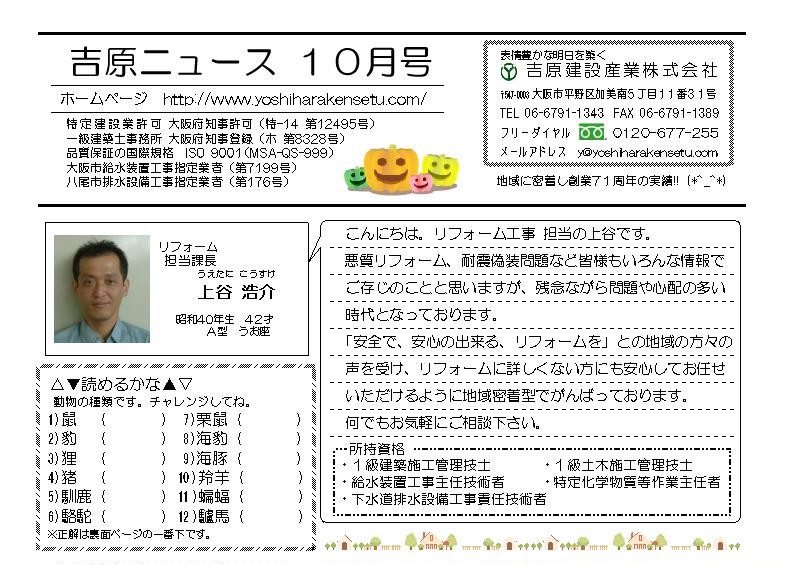 吉原ニュース １０月号
ホームページ　http://www.yoshiharakensetu.com/
特定建設業許可 大阪府知事許可（特-14 第12495号）
一級建築士事務所 大阪府知事登録（ホ 第8328号）
品質保証の国際規格　ISO 9001(MSA-QS-999)
大阪市給水装置工事指定業者（第7199号）
八尾市排水設備工事指定業者（第176号）
表情豊かな明日を築く
吉原建設産業株式会社
〒547-0003 大阪市平野区加美南５丁目１１番３１号
TEL 06-6791-1343　FAX 06-6791-1389
フリーダイヤル　0120-677-255
メールアドレス　y@yoshiharakensetu.com
地域に密着し創業７１周年の実績!!（*^_^*)
リフォーム
担当課長
うえたに こうすけ
上谷 浩介
昭和40年生　42才
A型　うお座
こんにちは。リフォーム工事 担当の上谷です。
悪質リフォーム、耐震偽装問題など皆様もいろんな情報で
ご存じのことと思いますが、残念ながら問題や心配の多い
時代となっております。
「安全で、安心の出来る、リフォームを」との地域の方々の
声を受け、リフォームに詳しくない方にも安心してお任せ
いただけるように地域密着型でがんばっております。
何でもお気軽にご相談下さい。
所持資格
・１級建築施工管理技士　・１級土木施工管理技士
・給水装置工事主任技術者　・特定化学物質等作業主任者
・下水道排水設備工事責任技術者
△▼読めるかな▲▽
動物の種類です。チャレンジしてね。
1)鼠　（　　　）　7)栗鼠（　　　）
2)豹　（　　　）　8)海豹（　　　）
3)狸　（　　　）　9)海豚（　　　）
4)猪　（　　　）　10)羚羊（　　　）
5)馴鹿（　　　）　11)蝙蝠（　　　）
6)駱駝（　　　）　12)驢馬（　　　）
※正解は裏面ページの一番下です。